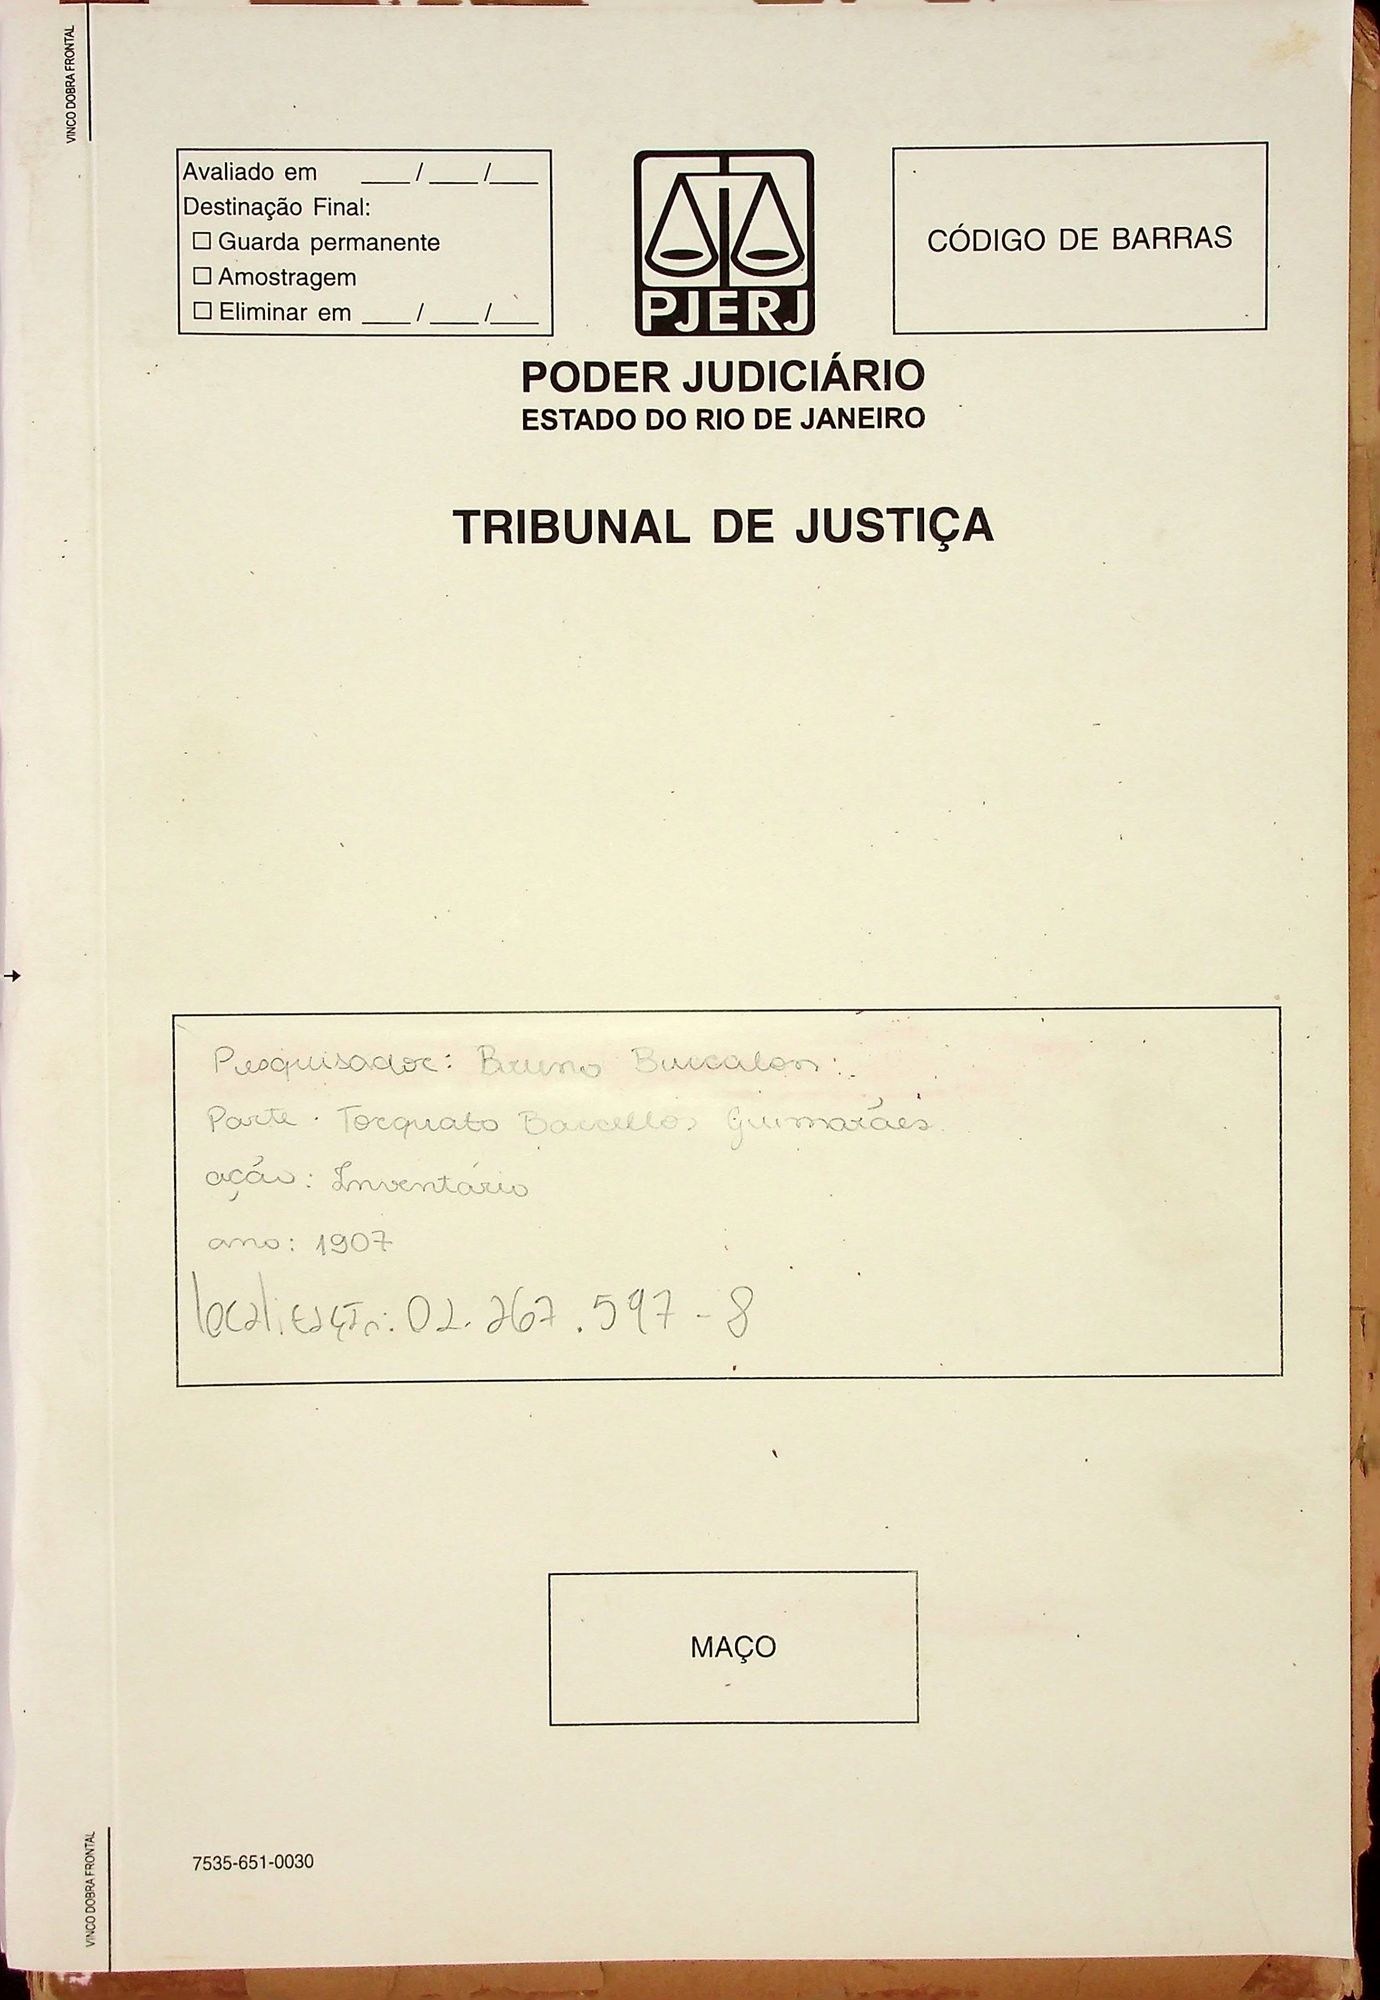 VINCO DOBRA FRONTAL
Avaliado em ___/___/___
Destinação Final:
☐ Guarda permanente
☐ Amostragem
☐ Eliminar em ___/___/___
PJERJ
CÓDIGO DE BARRAS
PODER JUDICIÁRIO
ESTADO DO RIO DE JANEIRO
TRIBUNAL DE JUSTIÇA
Pesquisador: Bruno Buccalon
Parte: Torquato Barcellos Guimarães
ação: Inventário
ano: 1907
localização: 02.267.597-8
MAÇO
7535-651-0030
VINCO DOBRA FRONTAL